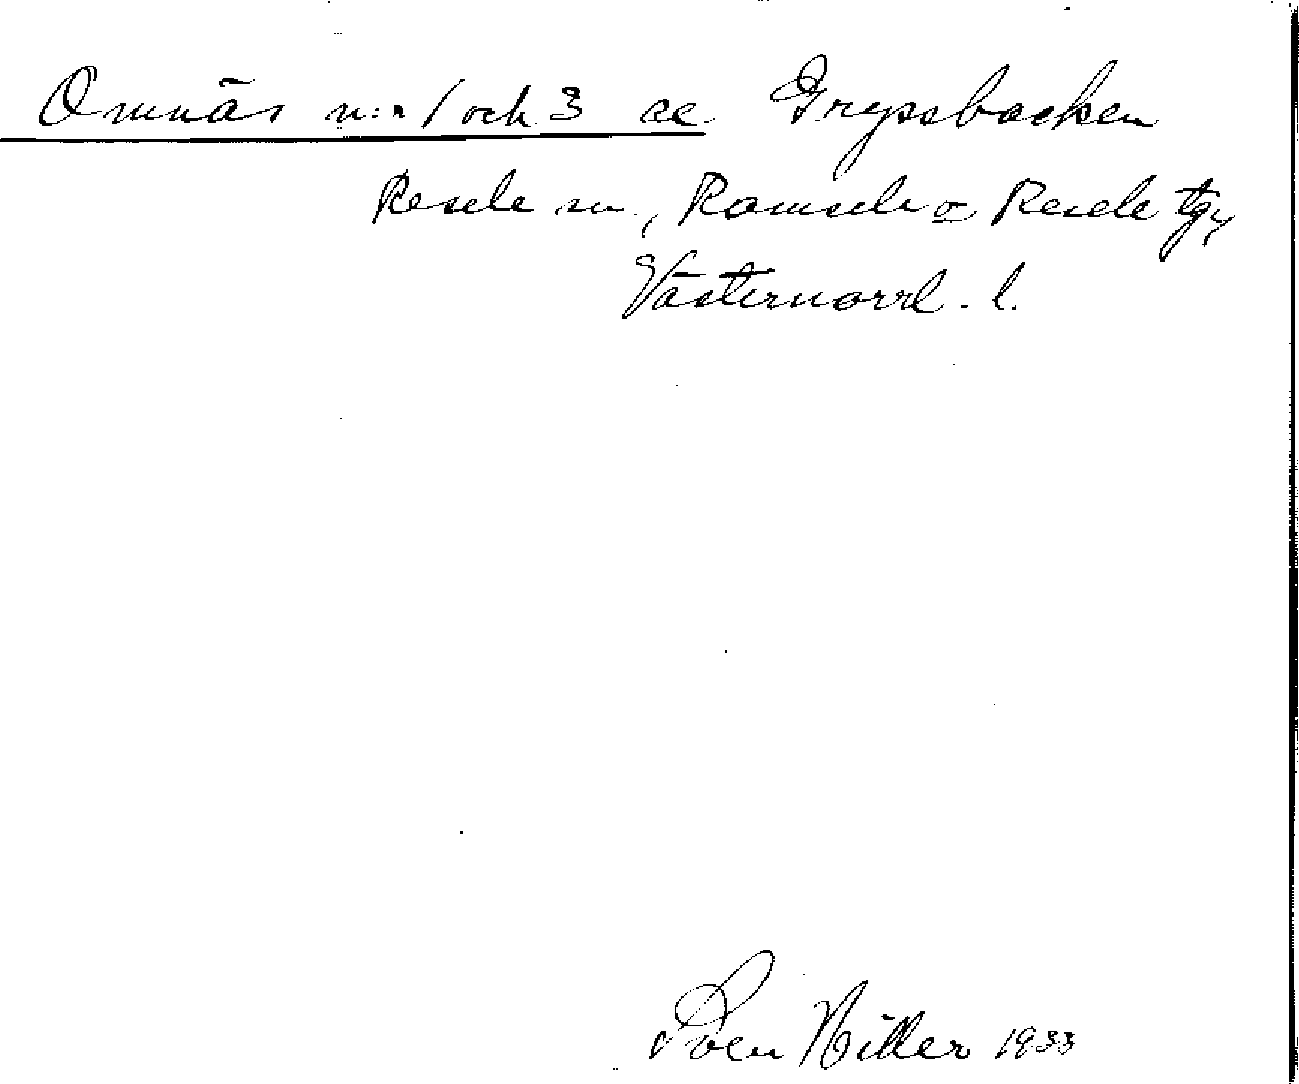 Omnäs n:r 1 och 3 se Grypsbacken
Resele sn, Ramsele o Resele tg,
Västernorrl. l.
Sven Hiller 1933